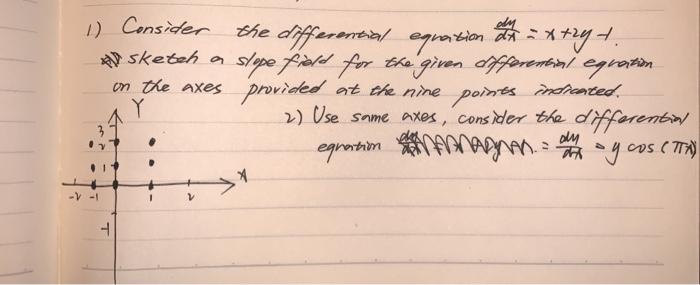 1) Consider the differential equation dy/dx = x+2y-1.
sketch a slope field for the given differential equation
on the axes provided at the nine points indicated.
2) Use same axes, consider the differential
equation = dy/dx = y cos (πx)
Y
3
2
1
X
-2 -1 1 2
-1